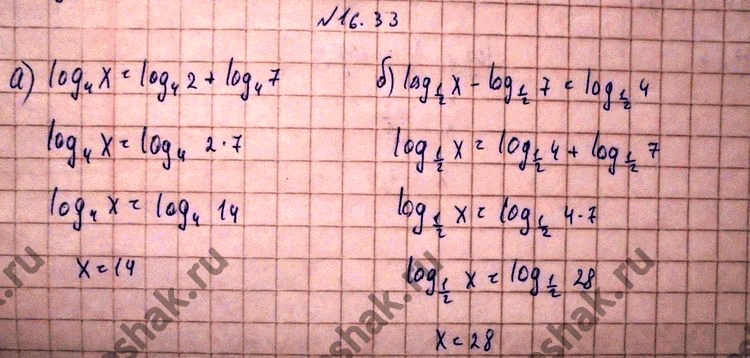 №16.33
а) log₄ x = log₄ 2 + log₄ 7
log₄ x = log₄ 2·7
log₄ x = log₄ 14
x = 14
б) log_{1/2} x - log_{1/2} 7 = log_{1/2} 4
log_{1/2} x = log_{1/2} 4 + log_{1/2} 7
log_{1/2} x = log_{1/2} 4·7
log_{1/2} x = log_{1/2} 28
x = 28